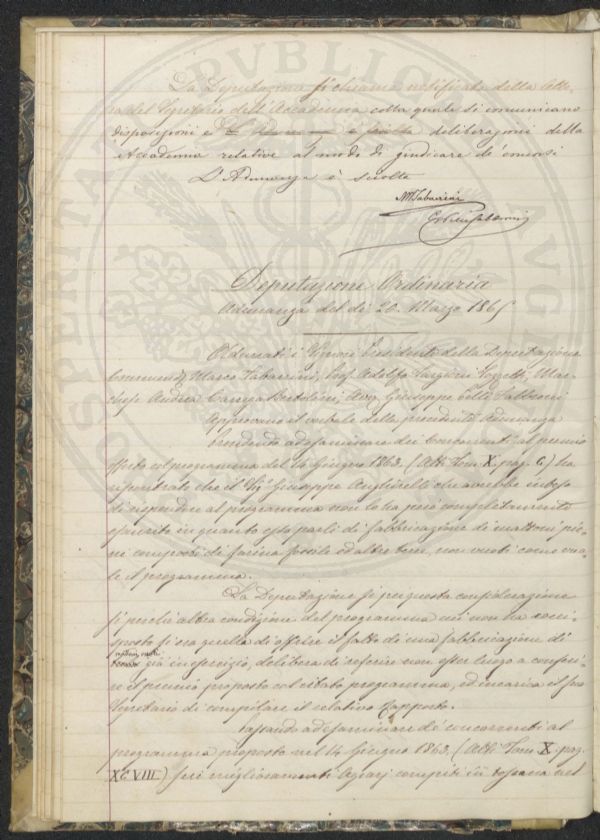 La Deputazione si chiama notificata della Lette-
ra del Segretario dell'Accademia colla quale si comunicano
disposizioni e deliberazioni della
Accademia relative al modo di giudicare de' concorsi
L'Adunanza è sciolta
MTabarrini
Deputazione Ordinaria
Adunanza del dì 20. Marzo 1865
Adunati i Signori Presidente della Deputazione
Commend. Marco Tabarrini, Prof. Adolfo Targioni Tozzetti, Mar-
chese Andrea Carega Bertolini, Avv. Giuseppe Celli Tabboni
Approvano il verbale della precedente Adunanza
Prendendo ad esaminare dei Concorrenti al premio
offerto col programma del 14 Giugno 1863. (Atti Tom. X. pag. C) ha
riscontrato che il Sig. Giuseppe che avrebbe inteso
di rispondere al programma non lo ha però completamente
esaurito in quanto esso parli di fabbricazione di mattoni pie-
ni composti di farina fossile ed altre terre, non vuoti come vuo-
le il programma.
La Deputazione sì per questa considerazione
sì perchè altra condizione del programma cui non ha corri-
sposto si era quella di offrire il fatto di una fabbricazione di
mattoni vuoti
già in esercizio, delibera di riferire non esser luogo a conferi-
re il premio proposto col citato programma, ed incarica il suo
Segretario di compilare il relativo Rapporto.
Passando ad esaminare de' concorrenti al
programma proposto nel 14 Giugno 1863. (Atti Tom. X. pag.
XCVIII) sui miglioramenti Agrarj compiti in Toscana nel